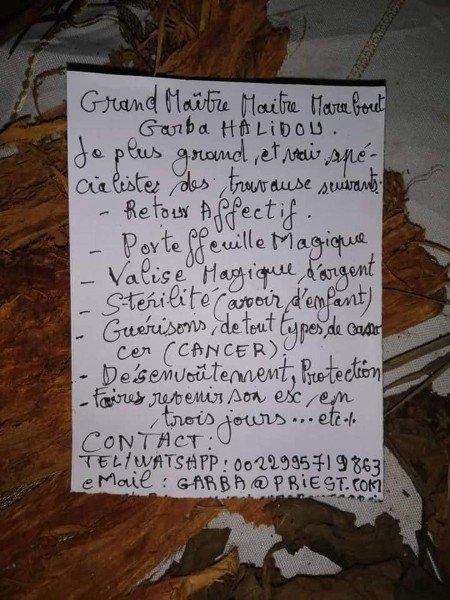 Grand Maître Maitre Marabout
Garba HALIDOU.
Je plus grand, et vrai spé-
cialistes des travause suivants.
- Retour Affectif.
- Porteffeuille Magique
- Valise Magique d'argent
- Stérilité (avoir d'enfant)
- Guérisons, de tout types, de can
cer (CANCER).
- Désenvoûtement, Protection
- Faires revenir son esc, en
trois jours... etc.
CONTACT:
TEL/WATSHAPP: 0022995719863
eMail: GARBA@PRIEST.COM